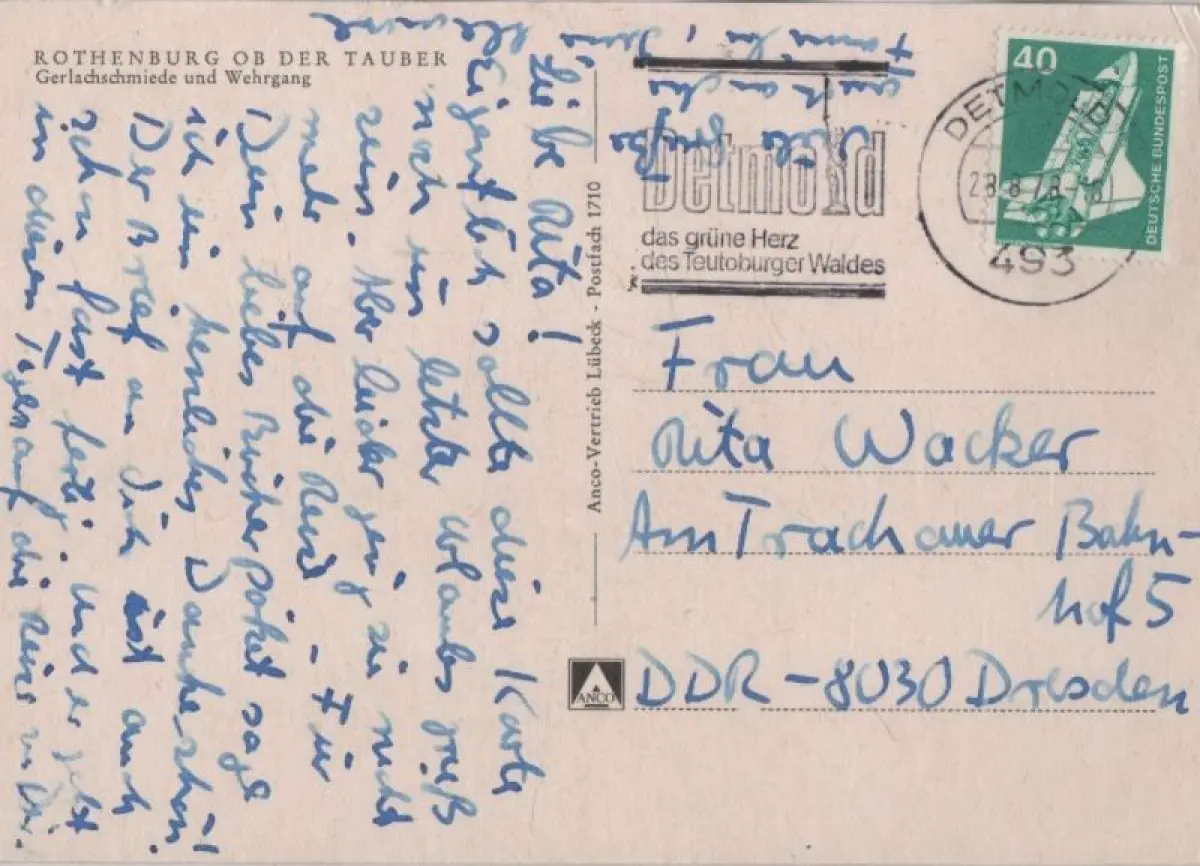 ROTHENBURG OB DER TAUBER
Gerlachschmiede und Wehrgang
Liebe Rita!
Eigentlich sollte diese Karte
noch ein letzter Urlaubsgruß
sein. Aber leider ging sie nicht
mehr auf die Reise - Für
Dein liebes Bücherpaket sage
ich ein herzliches Dankeschön!
Der Brief an Dich ist auch
schon fast fertig. Und er geht
in diesen Tagen auf die Reise zu Dir.
viele Grüße
Anco-Vertrieb Lübeck - Postfach 1710
ANCO
Detmold
das grüne Herz
des Teutoburger Waldes
DETMOLD 1
493
40
DEUTSCHE BUNDESPOST
Frau
Rita Wacker
Am Trachauer Bahn-
hof 5
DDR-8030 Dresden